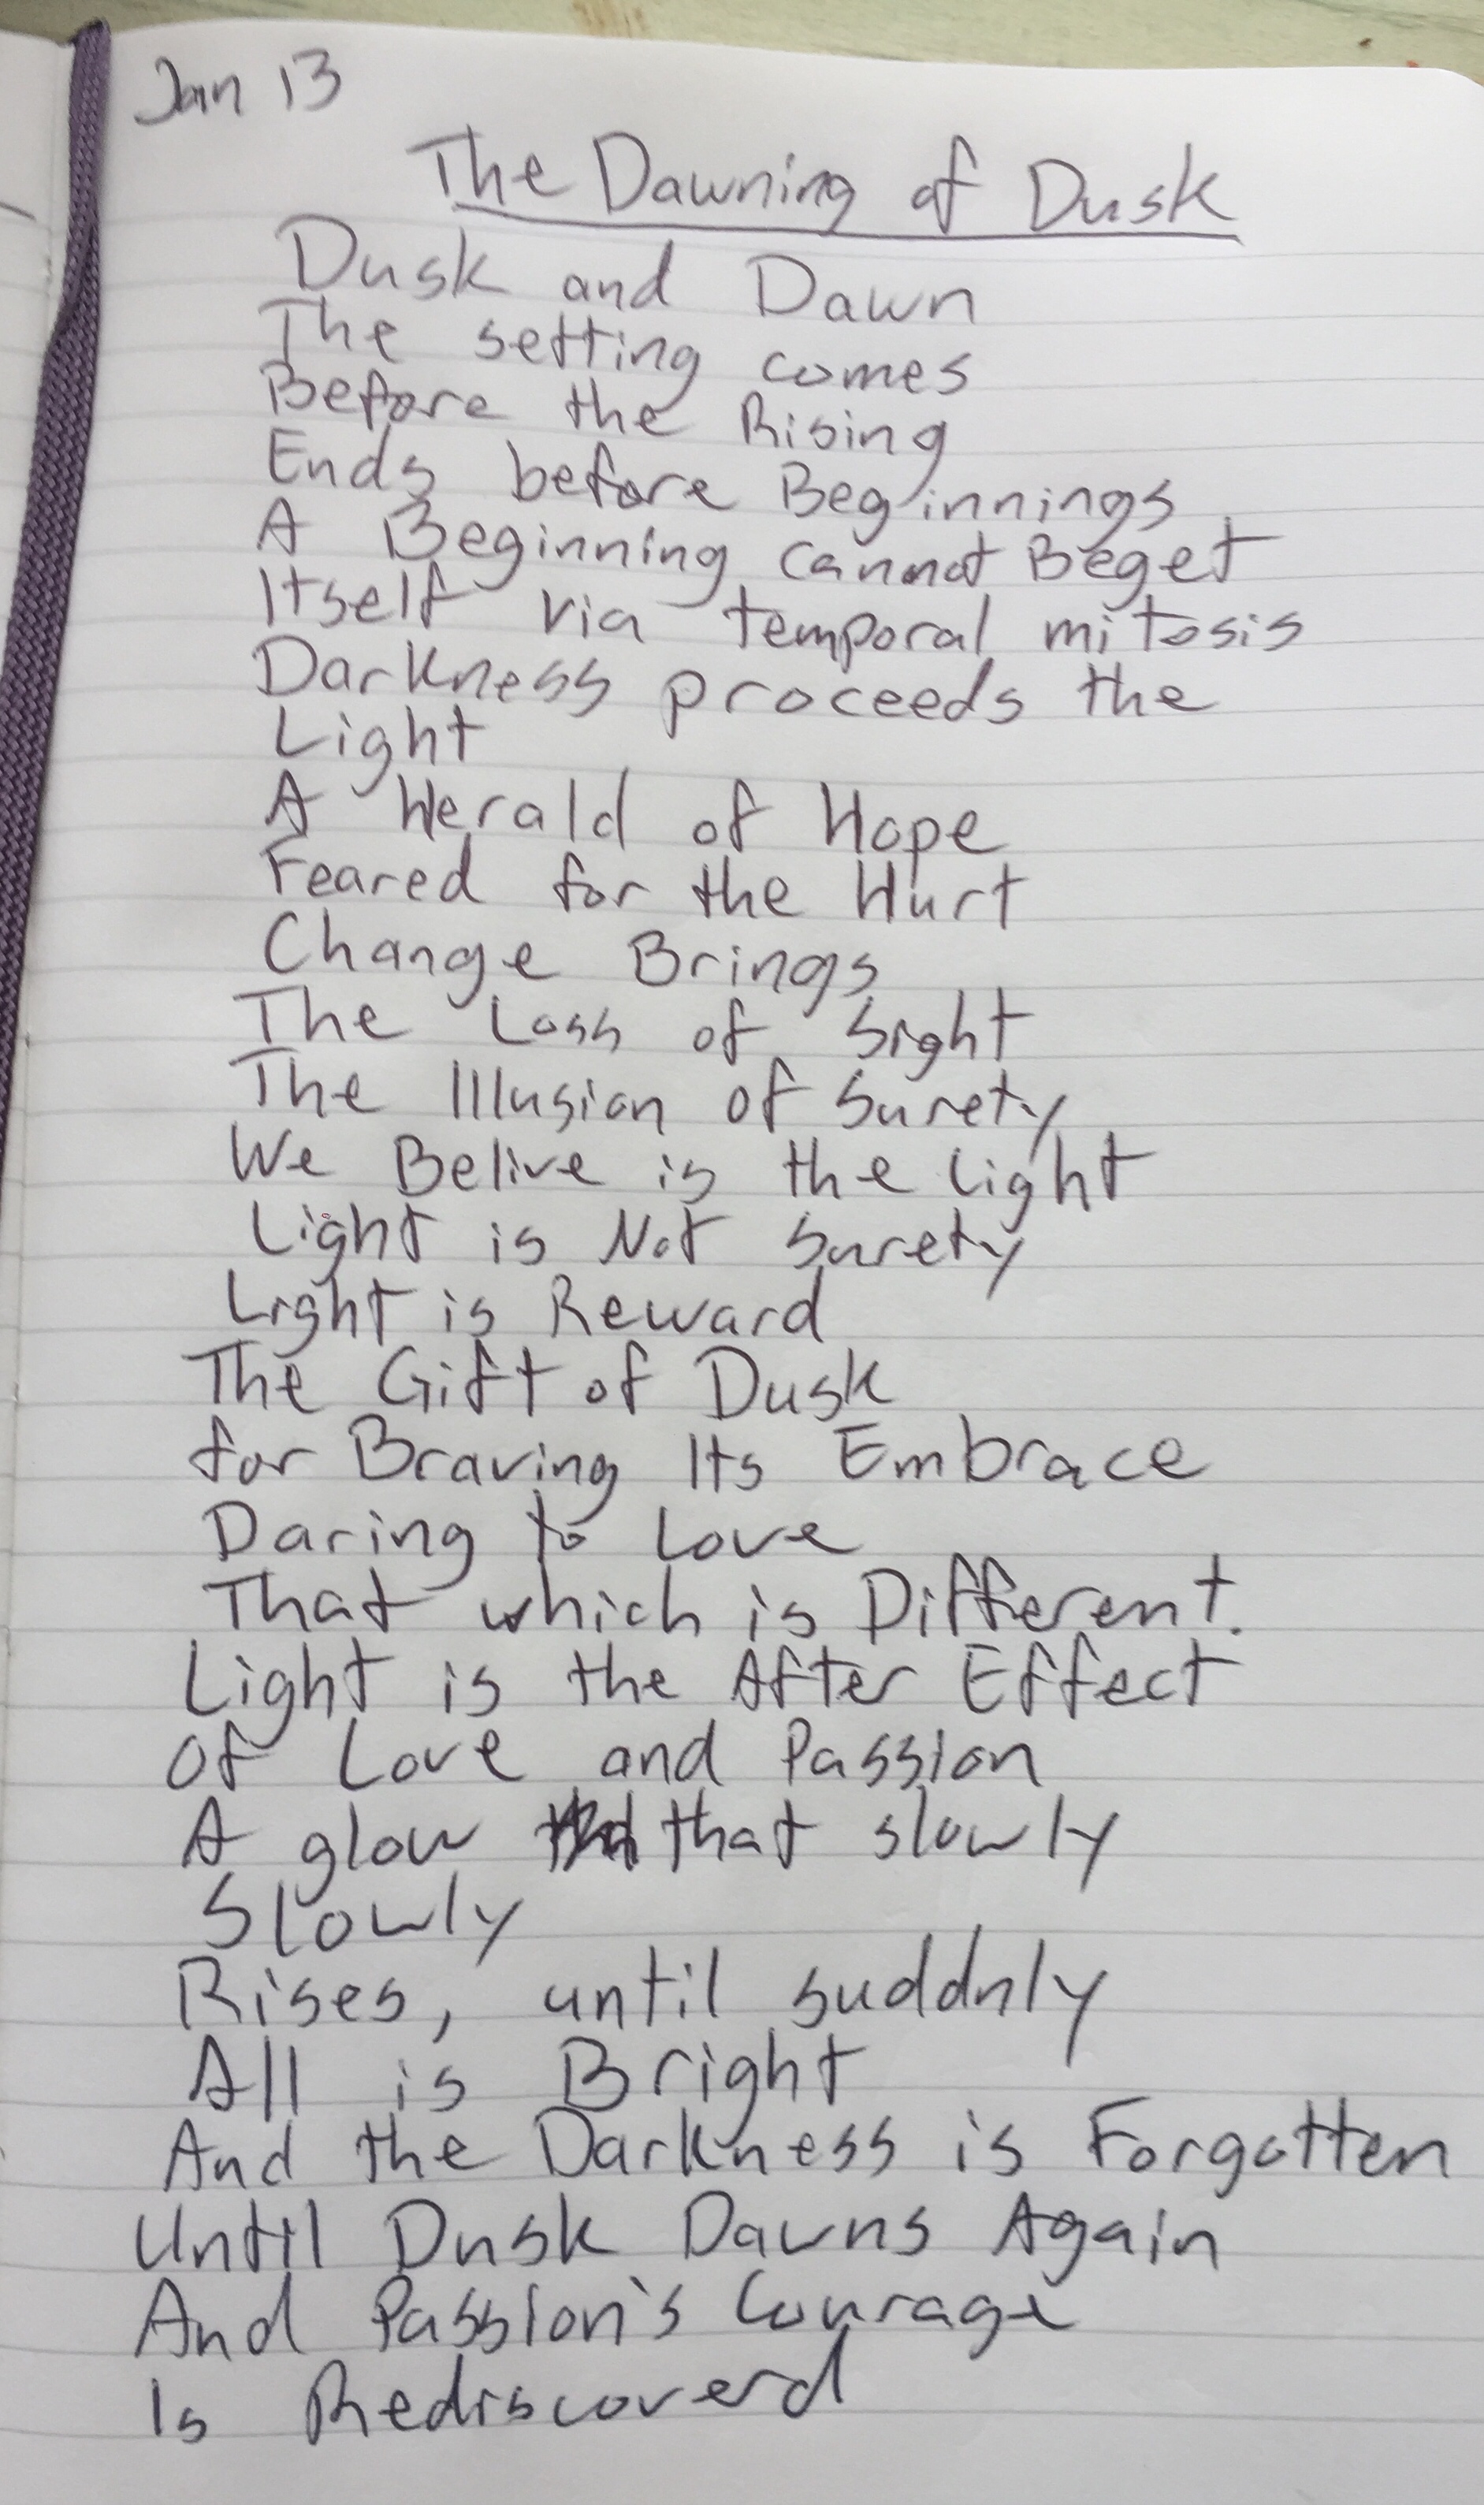 Jan 13
The Dawning of Dusk
Dusk and Dawn
The setting comes
Before the Rising
Ends before Beginnings
A Beginning cannot Beget
Itself via temporal mitosis
Darkness proceeds the
Light
A Herald of Hope
Feared for the Hurt
Change Brings
The Loss of Sight
The Illusion of Surety
We Belive is the Light
Light is Not Surety
Light is Reward
The Gift of Dusk
for Braving Its Embrace
Daring to Love
That which is Different.
Light is the After Effect
Of Love and Passion
A glow that slowly
Slowly
Rises, until suddnly
All is Bright
And the Darkness is Forgotten
Until Dusk Dawns Again
And Passion's Courage
Is Rediscoverd